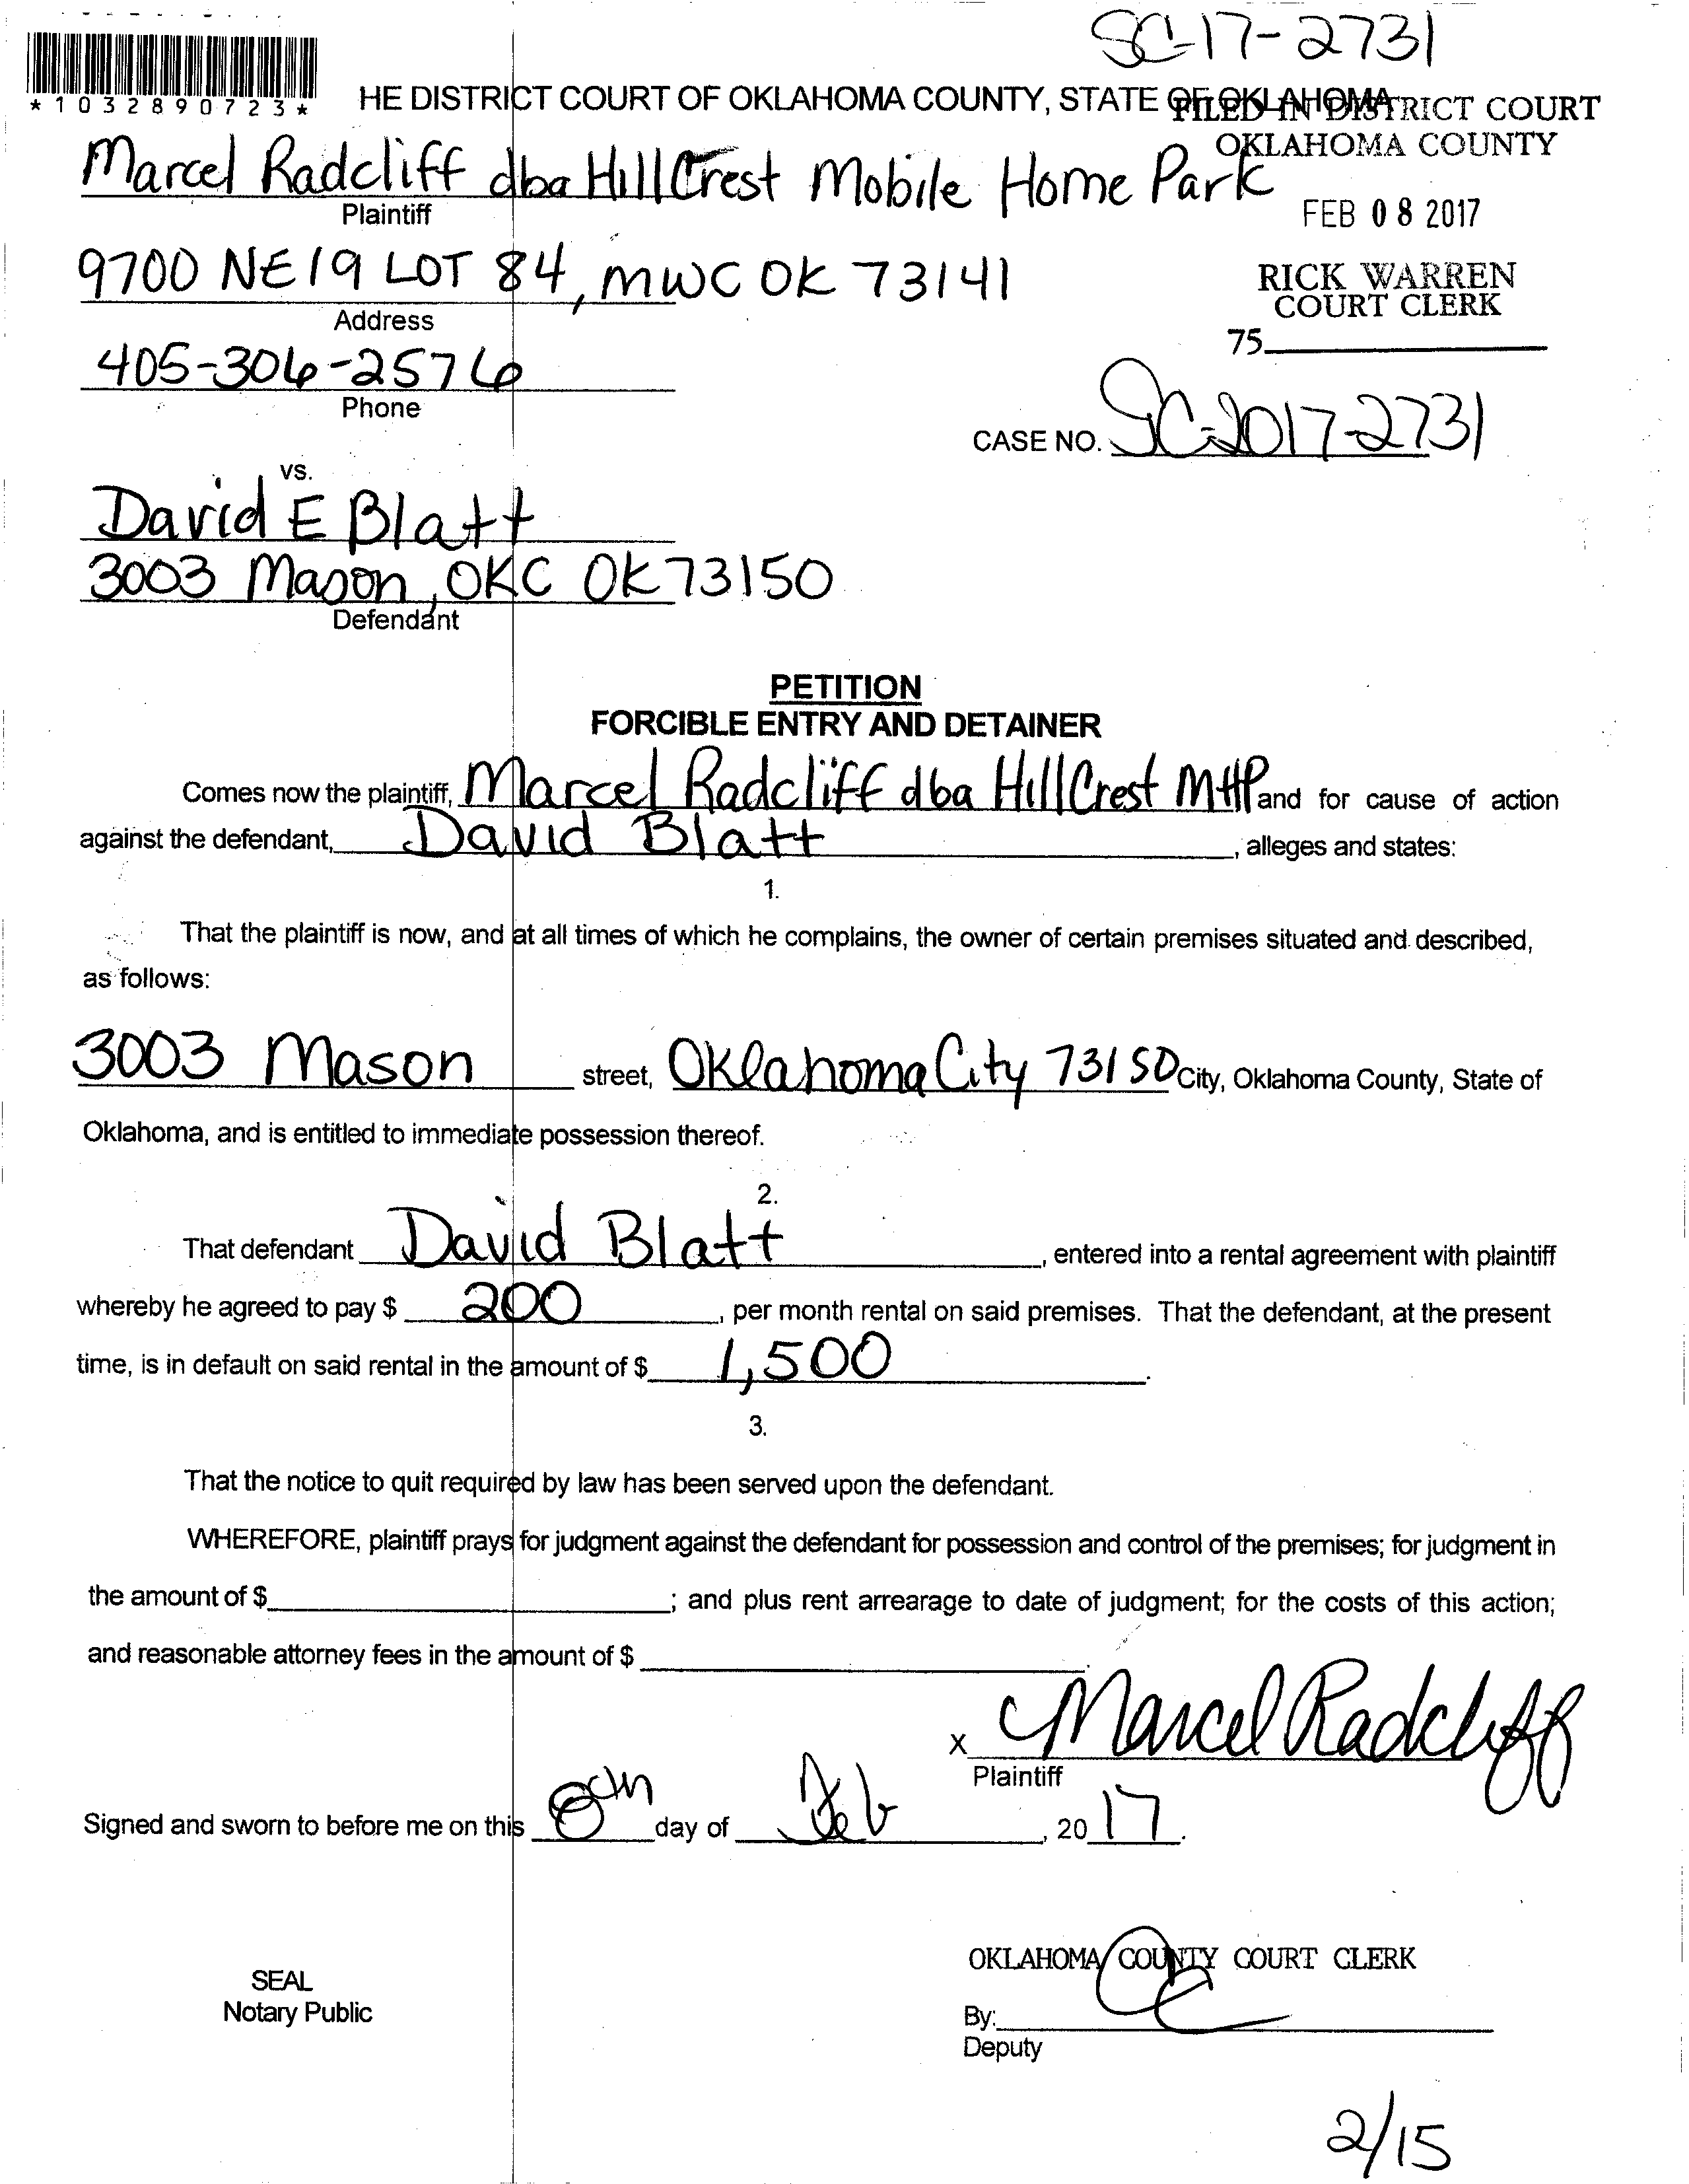 SC-17-2731
*1032890723*
HE DISTRICT COURT OF OKLAHOMA COUNTY, STATE OF OKLAHOMA
FILED IN DISTRICT COURT
OKLAHOMA COUNTY
Marcel Radcliff dba HillCrest Mobile Home Park
Plaintiff
FEB 08 2017
9700 NE 19 LOT 84, MWC OK 73141
Address
RICK WARREN
COURT CLERK
75
405-306-2576
Phone
CASE NO. SC-2017-2731
vs.
David E Blatt
3003 Mason, OKC OK 73150
Defendant
PETITION
FORCIBLE ENTRY AND DETAINER
Comes now the plaintiff, Marcel Radcliff dba HillCrest MHP and for cause of action
against the defendant, David Blatt, alleges and states:
1.
That the plaintiff is now, and at all times of which he complains, the owner of certain premises situated and described,
as follows:
3003 Mason street, Oklahoma City 73150 City, Oklahoma County, State of
Oklahoma, and is entitled to immediate possession thereof.
2.
That defendant David Blatt, entered into a rental agreement with plaintiff
whereby he agreed to pay $ 200, per month rental on said premises. That the defendant, at the present
time, is in default on said rental in the amount of $ 1,500.
3.
That the notice to quit required by law has been served upon the defendant.
WHEREFORE, plaintiff prays for judgment against the defendant for possession and control of the premises; for judgment in
the amount of $ ; and plus rent arrearage to date of judgment; for the costs of this action;
and reasonable attorney fees in the amount of $ .
X Marcel Radcliff
Plaintiff
Signed and sworn to before me on this 8th day of Feb, 2017.
OKLAHOMA COUNTY COURT CLERK
SEAL
Notary Public
By:
Deputy
2/15